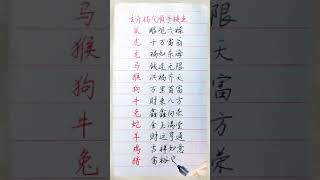 生肖福气顺手接走
鼠 眼观六禄
虎 十万富翁
龙 福如东海
马 钱途无限
猴 洪福齐天
狗 万里首富
牛 财来八方
兔 鑫鑫向荣
蛇 金玉满堂
羊 财运亨通
鸡 吉祥如意
猪 富裕
限
富
方
荣
马
猴
狗
牛
兔